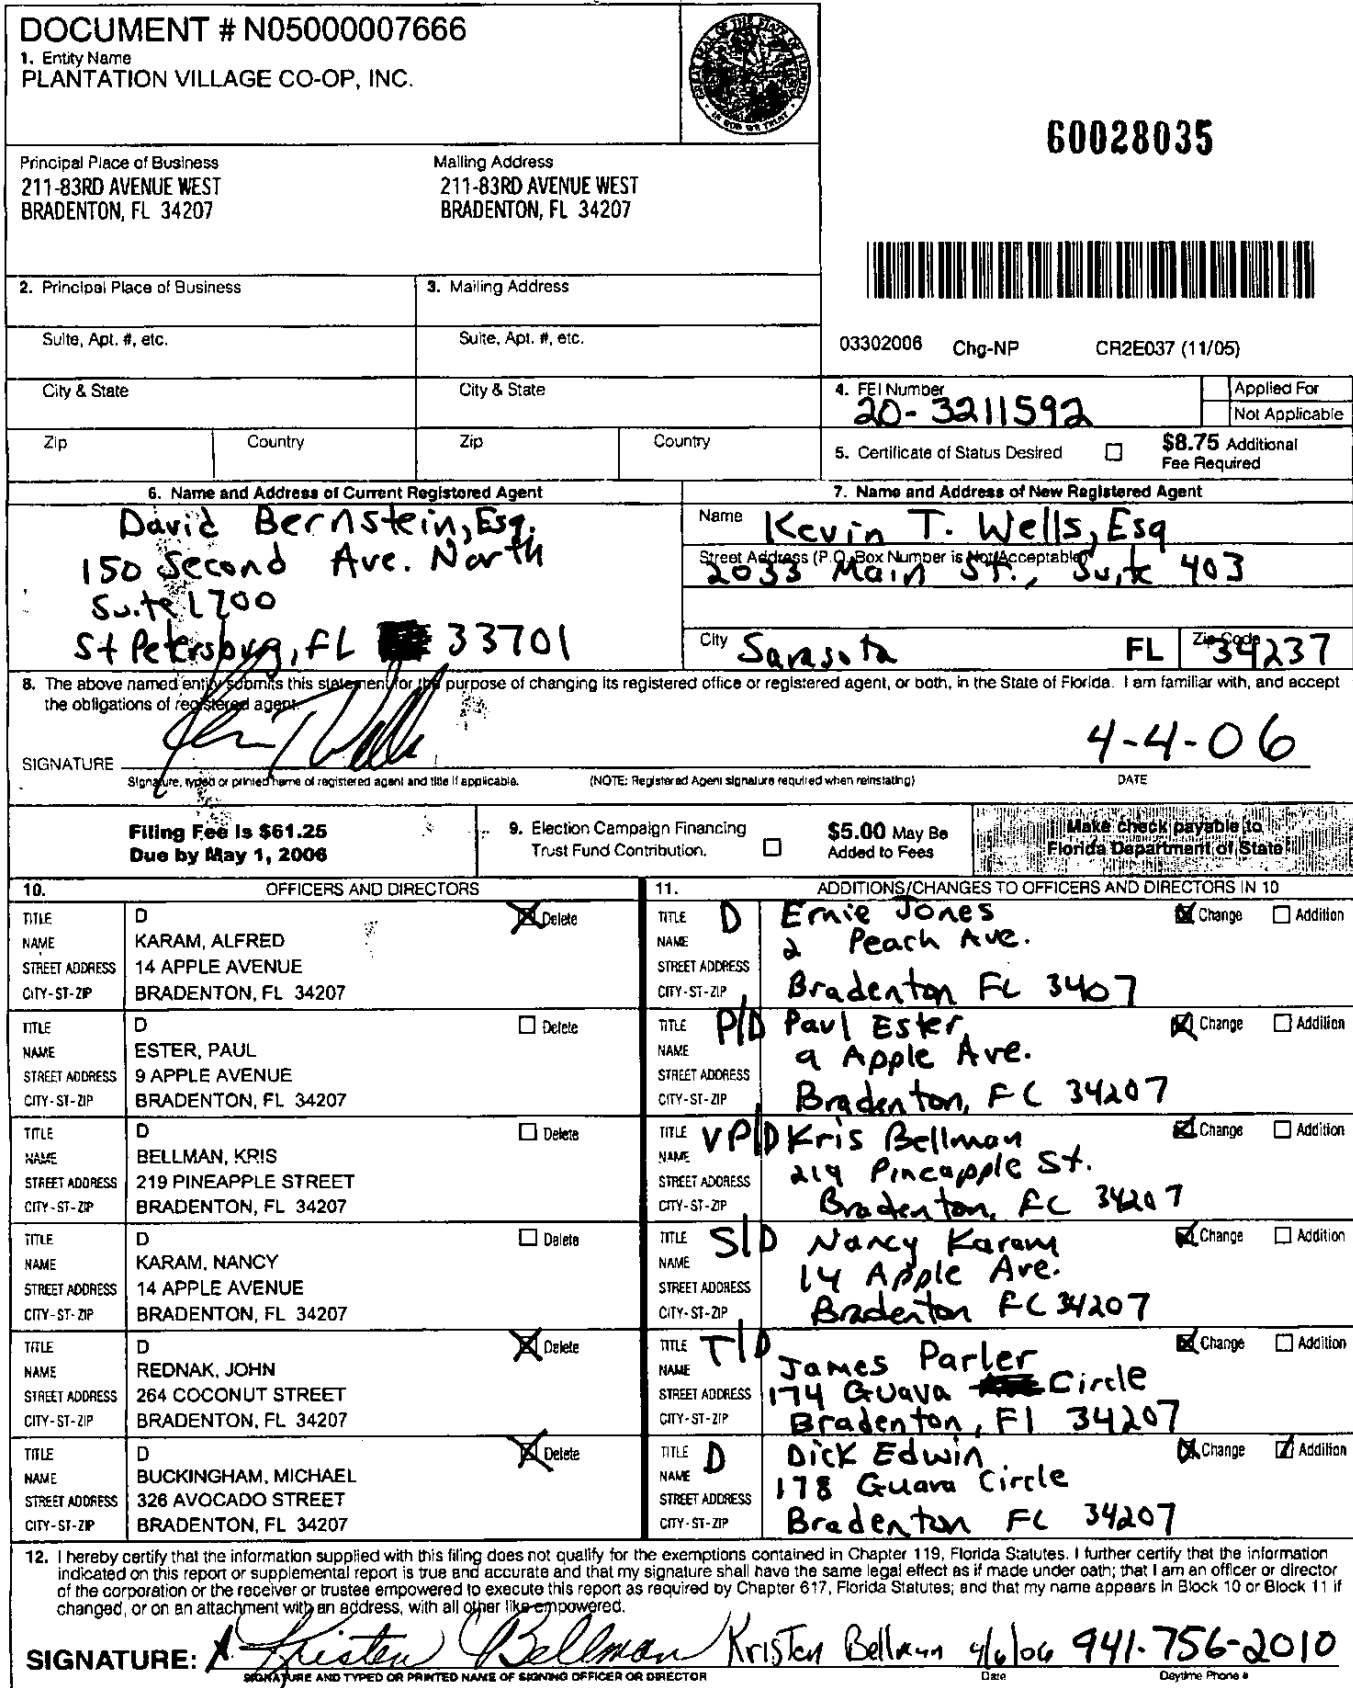 DOCUMENT # N05000007666
1. Entity Name
PLANTATION VILLAGE CO-OP, INC.
60028035
Principal Place of Business
211-83RD AVENUE WEST
BRADENTON, FL 34207
Mailing Address
211-83RD AVENUE WEST
BRADENTON, FL 34207
2. Principal Place of Business
3. Mailing Address
Suite, Apt. #, etc.
Suite, Apt. #, etc.
03302006 Chg-NP CR2E037 (11/05)
City & State
City & State
4. FEI Number
20-3211592
Applied For
Not Applicable
Zip Country Zip Country
5. Certificate of Status Desired
$8.75 Additional
Fee Required
6. Name and Address of Current Registered Agent
David Bernstein, Esq.
150 Second Ave. North
Suite 1700
St Petersburg, FL 33701
7. Name and Address of New Registered Agent
Name Kevin T. Wells, Esq
Street Address (P.O. Box Number is Not Acceptable)
2033 Main St., Suite 403
City Sarasota FL Zip Code 34237
8. The above named entity submits this statement for the purpose of changing its registered office or registered agent, or both, in the State of Florida. I am familiar with, and accept
the obligations of registered agent.
4-4-06
SIGNATURE
Signature, typed or printed name of registered agent and title if applicable. (NOTE: Registered Agent signature required when reinstating) DATE
Filing Fee is $61.25
Due by May 1, 2006
9. Election Campaign Financing
Trust Fund Contribution.
$5.00 May Be
Added to Fees
Make check payable to
Florida Department of State
10. OFFICERS AND DIRECTORS
11. ADDITIONS/CHANGES TO OFFICERS AND DIRECTORS IN 10
TITLE D Delete
NAME KARAM, ALFRED
STREET ADDRESS 14 APPLE AVENUE
CITY-ST-ZIP BRADENTON, FL 34207
TITLE D Ernie Jones Change Addition
NAME 2 Peach Ave.
STREET ADDRESS
CITY-ST-ZIP Bradenton FL 3407
TITLE D Delete
NAME ESTER, PAUL
STREET ADDRESS 9 APPLE AVENUE
CITY-ST-ZIP BRADENTON, FL 34207
TITLE P/D Paul Ester Change Addition
NAME 9 Apple Ave.
STREET ADDRESS
CITY-ST-ZIP Bradenton, FL 34207
TITLE D Delete
NAME BELLMAN, KRIS
STREET ADDRESS 219 PINEAPPLE STREET
CITY-ST-ZIP BRADENTON, FL 34207
TITLE VP/D Kris Bellman Change Addition
NAME 219 Pineapple St.
STREET ADDRESS
CITY-ST-ZIP Bradenton, FL 34207
TITLE D Delete
NAME KARAM, NANCY
STREET ADDRESS 14 APPLE AVENUE
CITY-ST-ZIP BRADENTON, FL 34207
TITLE S/D Nancy Karam Change Addition
NAME 14 Apple Ave.
STREET ADDRESS
CITY-ST-ZIP Bradenton FL 34207
TITLE D Delete
NAME REDNAK, JOHN
STREET ADDRESS 264 COCONUT STREET
CITY-ST-ZIP BRADENTON, FL 34207
TITLE T/D Change Addition
NAME James Parler
STREET ADDRESS 174 Guava Circle
CITY-ST-ZIP Bradenton, Fl 34207
TITLE D Delete
NAME BUCKINGHAM, MICHAEL
STREET ADDRESS 326 AVOCADO STREET
CITY-ST-ZIP BRADENTON, FL 34207
TITLE D Dick Edwin Change Addition
NAME 178 Guava Circle
STREET ADDRESS
CITY-ST-ZIP Bradenton FL 34207
12. I hereby certify that the information supplied with this filing does not qualify for the exemptions contained in Chapter 119, Florida Statutes. I further certify that the information
indicated on this report or supplemental report is true and accurate and that my signature shall have the same legal effect as if made under oath; that I am an officer or director
of the corporation or the receiver or trustee empowered to execute this report as required by Chapter 617, Florida Statutes; and that my name appears in Block 10 or Block 11 if
changed, or on an attachment with an address, with all other like empowered.
SIGNATURE: X Kristen Bellman Kristen Bellman 4/6/06 941-756-2010
SIGNATURE AND TYPED OR PRINTED NAME OF SIGNING OFFICER OR DIRECTOR Date Daytime Phone #